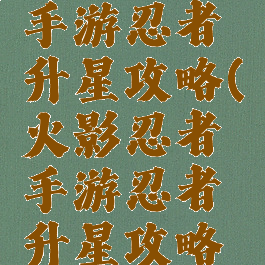 手游忍者
升星攻略(
火影忍者
手游忍者
升星攻略